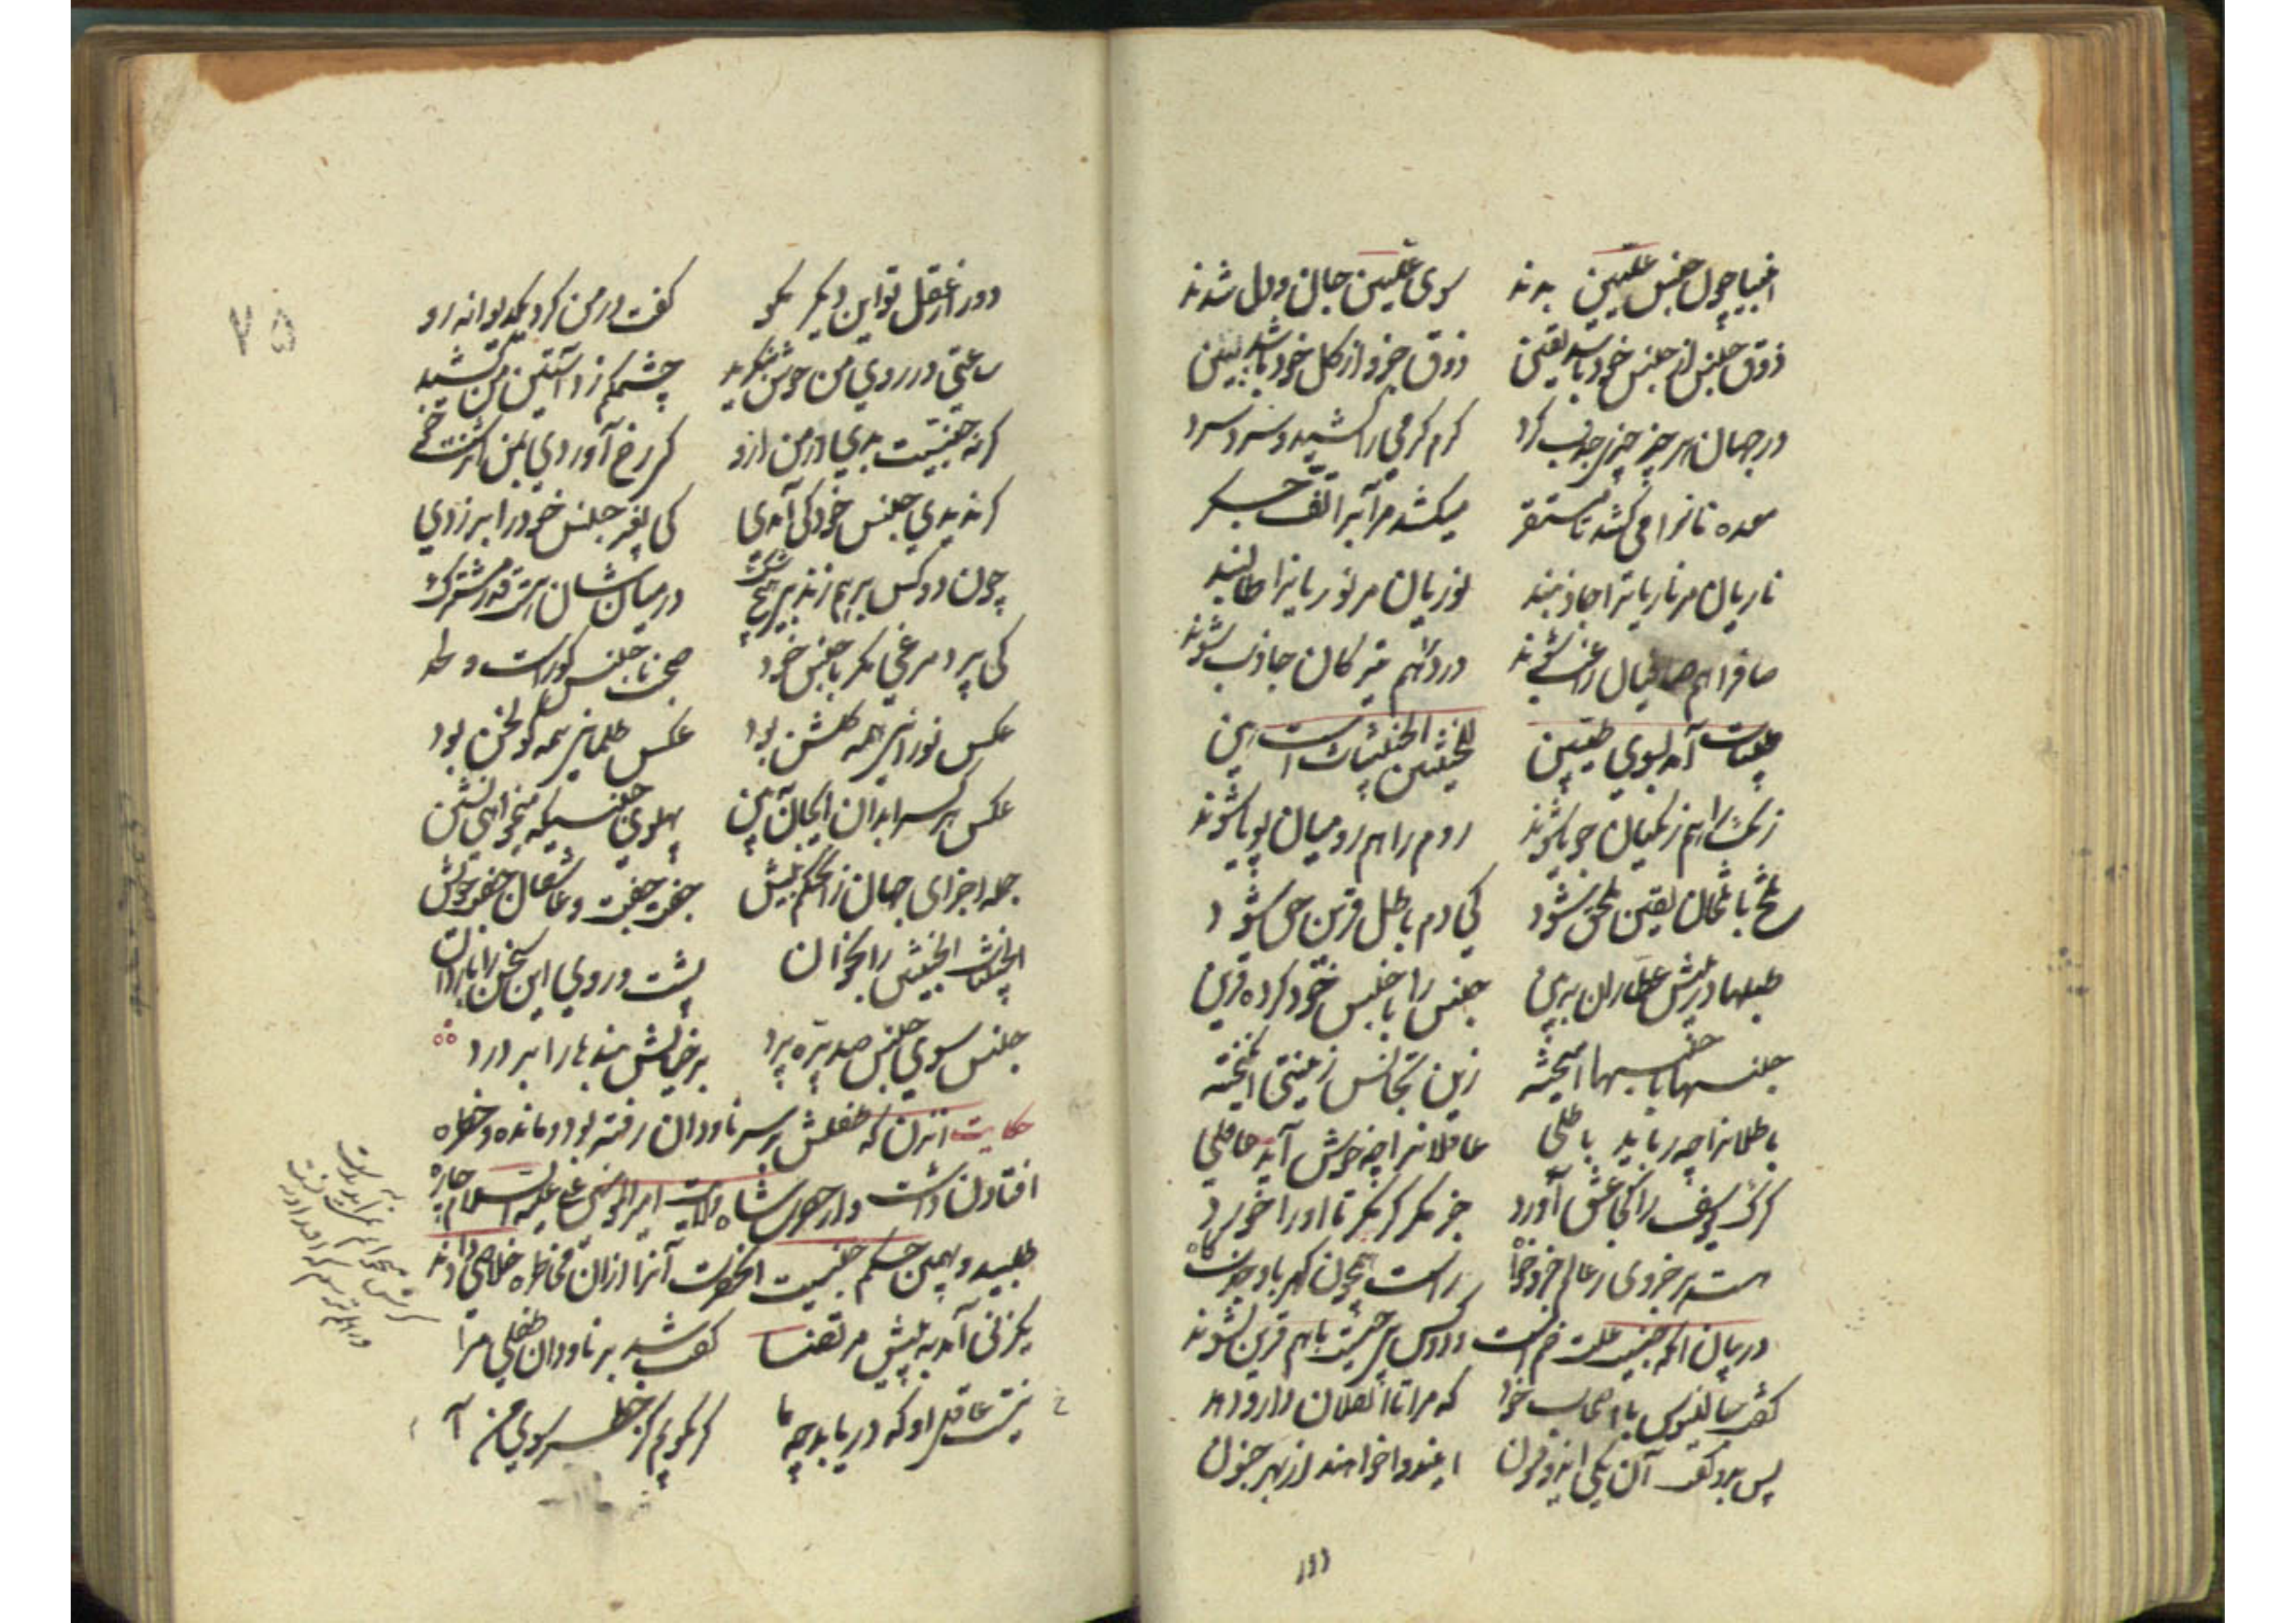 انبیا چون جنس علیین بدند سوی علیین جان و دل شدند
ذوق جنس از جنس خود باشد یقین ذوق جزو از کل خود باشد ببین
در جهان هر چیز چیزی جذب کرد گرم گرمی را کشید و سرد سرد
معده نانرا می کشد تا مستقر میکشد مر آبرا تف جگر
ناریان مر ناریانرا جاذبند نوریان مر نوریانرا طالبند
صافرا هم صافیان راغب شوند دردرا هم تیرگان جاذب شوند
طیبات آمد بسوی طیبین للخبیثین الخبیثات است این
زنگ را هم زنگیان جویا شوند روم را هم رومیان پویا شوند
تلخ با تلخان یقین ملحق شود کی دم باطل قرین حق شود
طبلها در پیش عطاران ببین جنس را با جنس خود کرده قرین
جنسها با جنسها آمیخته زین تجانس زینتی انگیخته
باطلانرا چه رباید باطلی عاقلانرا چه خوش آید عاقلی
گرگ یوسف را کجا عشق آورد جز مگر از مکر تا او را خورد
هست هر جزوی ز عالم جزو خواه راست همچون کهربا و جذب کاه
در بیان انکه جنسیت علت ضم است و دو کس بی جنسیت باهم قرین نشوند
گفت جالینوس با اصحاب خود که مرا تا آن فلان دارو دهد
پس بدو گفت آن یکی ای ذو فنون این دوا خواهند از بهر جنون
دور
۷۵
دور از عقل تو این دیگر مگو گفت در من کرد یک دیوانه رو
ساعتی در روی من خوش بنگرید چشمکم زد آستین من کشید
گرنه جنسیت بدی در من ازو کی رخ آوردی بمن آن زشت خو
گر ندیدی جنس خود کی آمدی کی بغیر جنس خود را برزدی
چون دو کس برهم زند بی هیچ شک در میان شان هست قدر مشترک
کی پرد مرغی مگر با جنس خود صحبت ناجنس گورست و لحد
عکس نورانی همه گلشن بود عکس ظلمانی همه گولخن بود
عکس هر کس را بدان ای جان ببین پهلوی جنسیکه میخواهی نشین
جمله اجزای جهان زان حکم پیش جفت جفت و عاشقان جفت خویش
الخبیثات الخبیثین را بخوان پشت و روی این سخن را باز دان
جنس سوی جنس صد پره پرد بر خیالش بندها را بر درد
حکایت انزن که طفلش بر سر ناودان رفته بود و مانده و خطره
افتادن داشت و از حضرت شاه ولایت امیر المومنین علی علیه السلام چاره
طلبید و بهمین حکم جنسیت انحضرت آنرا ازان مخاطره خلاصی دادند
یک زنی آمد به پیش مرتضا گفت شد بر ناودان طفلی مرا
نیست عاقل او که دریابد چو ما گر بگویم کز خطر سوی من آ